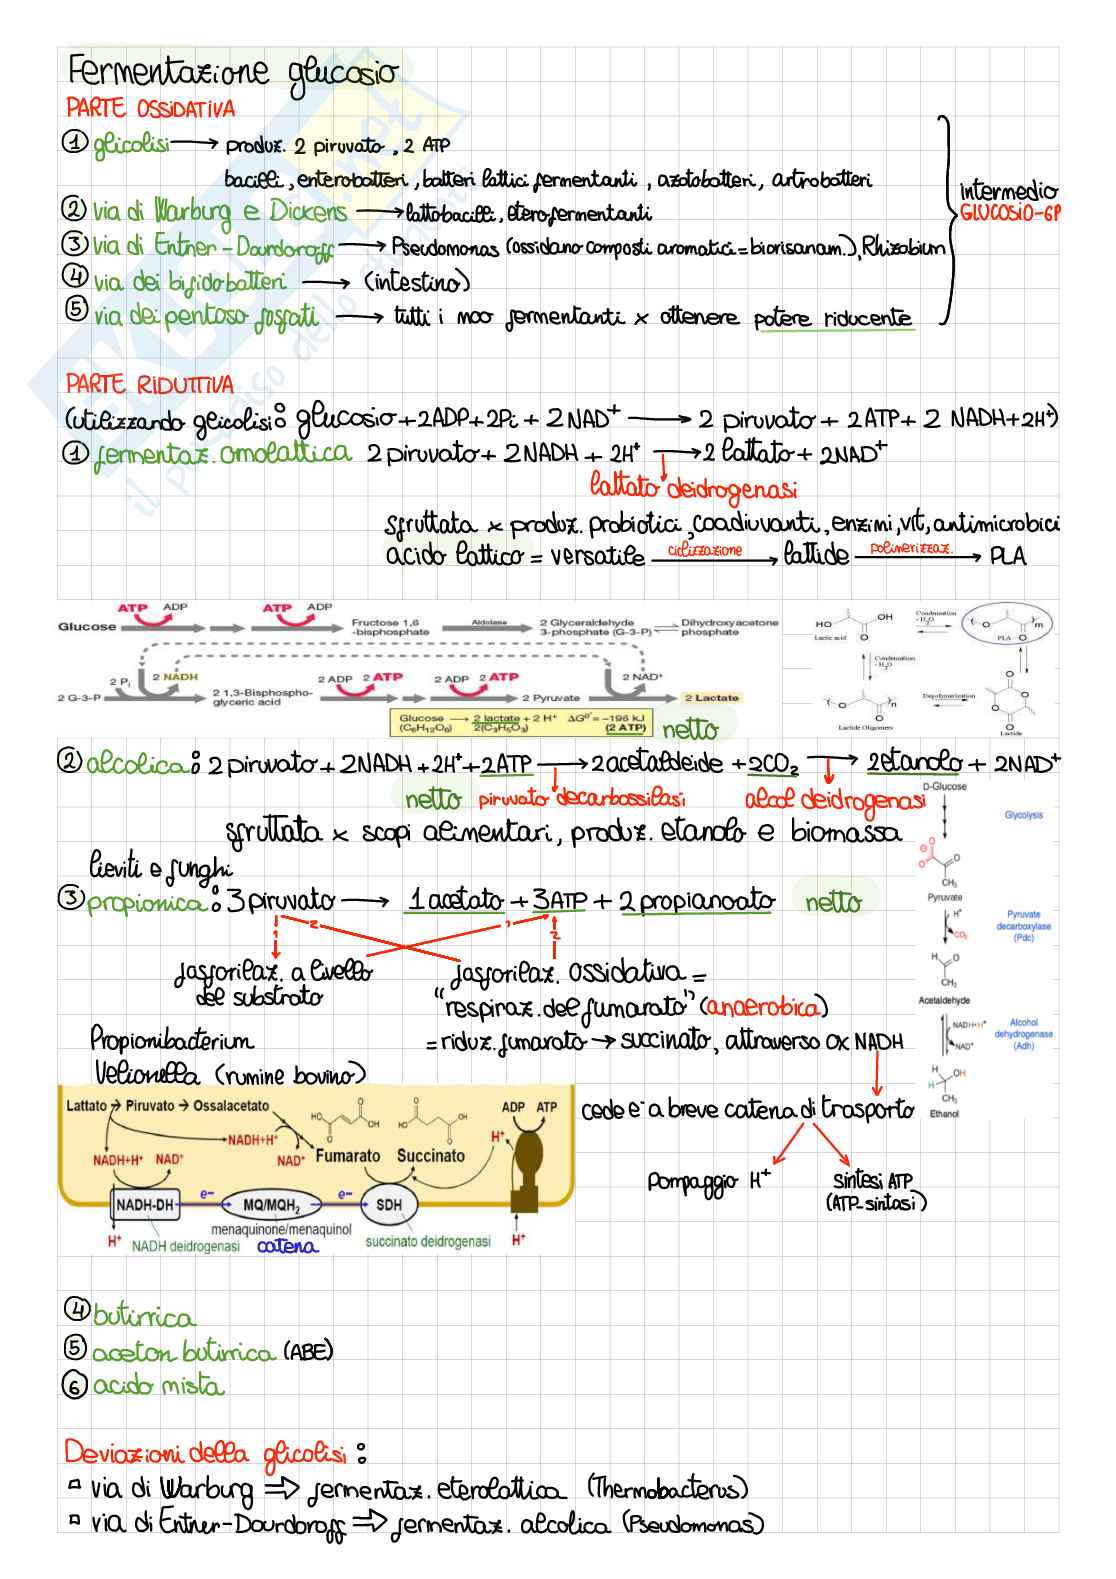 Fermentazione glucosio
PARTE OSSIDATIVA
① glicolisi → produz. 2 piruvato, 2 ATP
bacilli, enterobatteri, batteri lattici fermentanti, azotobatteri, artrobatteri
② via di Warburg e Dickens → lattobacilli, eterofermentanti
③ via di Entner-Dourdoroff → Pseudomonas (ossidano composti aromatici = biorisanam.), Rhizobium
④ via dei bifidobatteri → (intestino)
⑤ via dei pentoso fosfati → tutti i moo fermentanti x ottenere potere riducente
intermedio
GLUCOSIO-6P
PARTE RIDUTTIVA
(utilizzando glicolisi: glucosio + 2ADP + 2Pi + 2NAD⁺ → 2 piruvato + 2ATP + 2 NADH + 2H⁺)
① fermentaz. omolattica 2 piruvato + 2NADH + 2H⁺ → 2 lattato + 2NAD⁺
lattato deidrogenasi
sfruttata x produz. probiotici, coadiuvanti, enzimi, vit, antimicrobici
acido lattico = versatile ciclizzazione → lattide polimerizzaz. → PLA
ATP ADP ATP ADP
Glucose Fructose 1,6 -bisphosphate Aldolase 2 Glyceraldehyde 3-phosphate (G-3-P) Dihydroxyacetone phosphate
2 Pi 2 NADH 2 ADP 2 ATP 2 ADP 2 ATP 2 NAD⁺
2 G-3-P 2 1,3-Bisphospho-glyceric acid 2 Pyruvate 2 Lactate
Glucose → 2 lactate + 2 H⁺ ΔG⁰' = –196 kJ
(C₆H₁₂O₆) 2(C₃H₅O₃) (2 ATP)
netto
HO OH O
Lactic acid
Condensation
- H₂O
O m O
PLA
Condensation
- H₂O
O n O
Lactide Oligomers
Depolymerization
O O O O
Lactide
② alcolica: 2 piruvato + 2NADH + 2H⁺ + 2ATP → 2 acetaldeide + 2CO₂ → 2 etanolo + 2NAD⁺
netto piruvato decarbossilasi alcol deidrogenasi
sfruttata x scopi alimentari, produz. etanolo e biomassa
lieviti e funghi
D-Glucose
Glycolysis
O O O CH₃
Pyruvate
H⁺
CO₂
Pyruvate
decarboxylase
(Pdc)
H O CH₃
Acetaldehyde
NADH+H⁺
NAD⁺
Alcohol
dehydrogenase
(Adh)
H OH H CH₃
Ethanol
③ propionica: 3 piruvato → 1 acetato + 3ATP + 2 propianoato netto
1 2 1 2
fosforilaz. a livello
del substrato
fosforilaz. ossidativa =
"respiraz. del fumarato" (anaerobica)
= riduz. fumarato → succinato, attraverso ox NADH
Propionibacterium
Velionella (rumine bovino)
cede e⁻ a breve catena di trasporto
Pompaggio H⁺
sintesi ATP
(ATP-sintasi)
Lattato → Piruvato → Ossalacetato
HO O O OH HO O O OH
ADP ATP
NADH+H⁺
H⁺
NADH+H⁺ NAD⁺
NAD⁺
Fumarato Succinato
NADH-DH e– MQ/MQH₂ e– SDH
menaquinone/menaquinol
H⁺ NADH deidrogenasi catena succinato deidrogenasi H⁺
④ butirrica
⑤ aceton butirrica (ABE)
⑥ acido mista
Deviazioni della glicolisi:
▫ via di Warburg ⇒ fermentaz. eterolattica (Thermobacterus)
▫ via di Entner-Dourdoroff ⇒ fermentaz. alcolica (Pseudomonas)